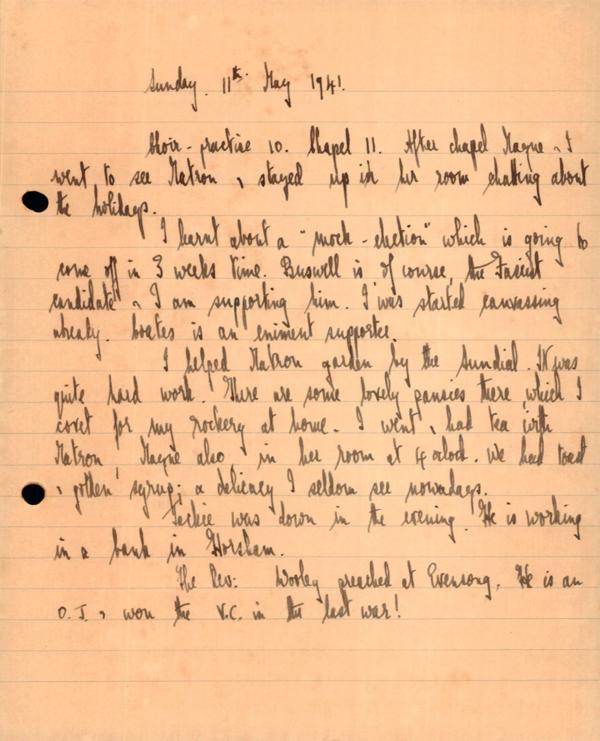 Sunday. 11th May 1941.
Choir-practise 10. Chapel 11. After chapel Mayne & I
went to see Matron & stayed up in her room chatting about
the holidays.
I learnt about a "mock-election" which is going to
come off in 3 weeks time. Buswell is of course, the Fascist
candidate & I am supporting him. I was started canvassing
already. is an eniment supporter.
I helped Matron garden by the sundial. It was
quite hard work. There are some lovely pansies there which I
covet for my rockery at home. I went & had tea with
Matron, Mayne also, in her room at 4 oclock. We had toast
& golden syrup; a delicacy I seldom see nowadays.
was down in the evening. He is working
in a bank in Horsham.
The Rev: Wooley preached at Evensong. He is an
O.J. & won the V.C. in the last war!